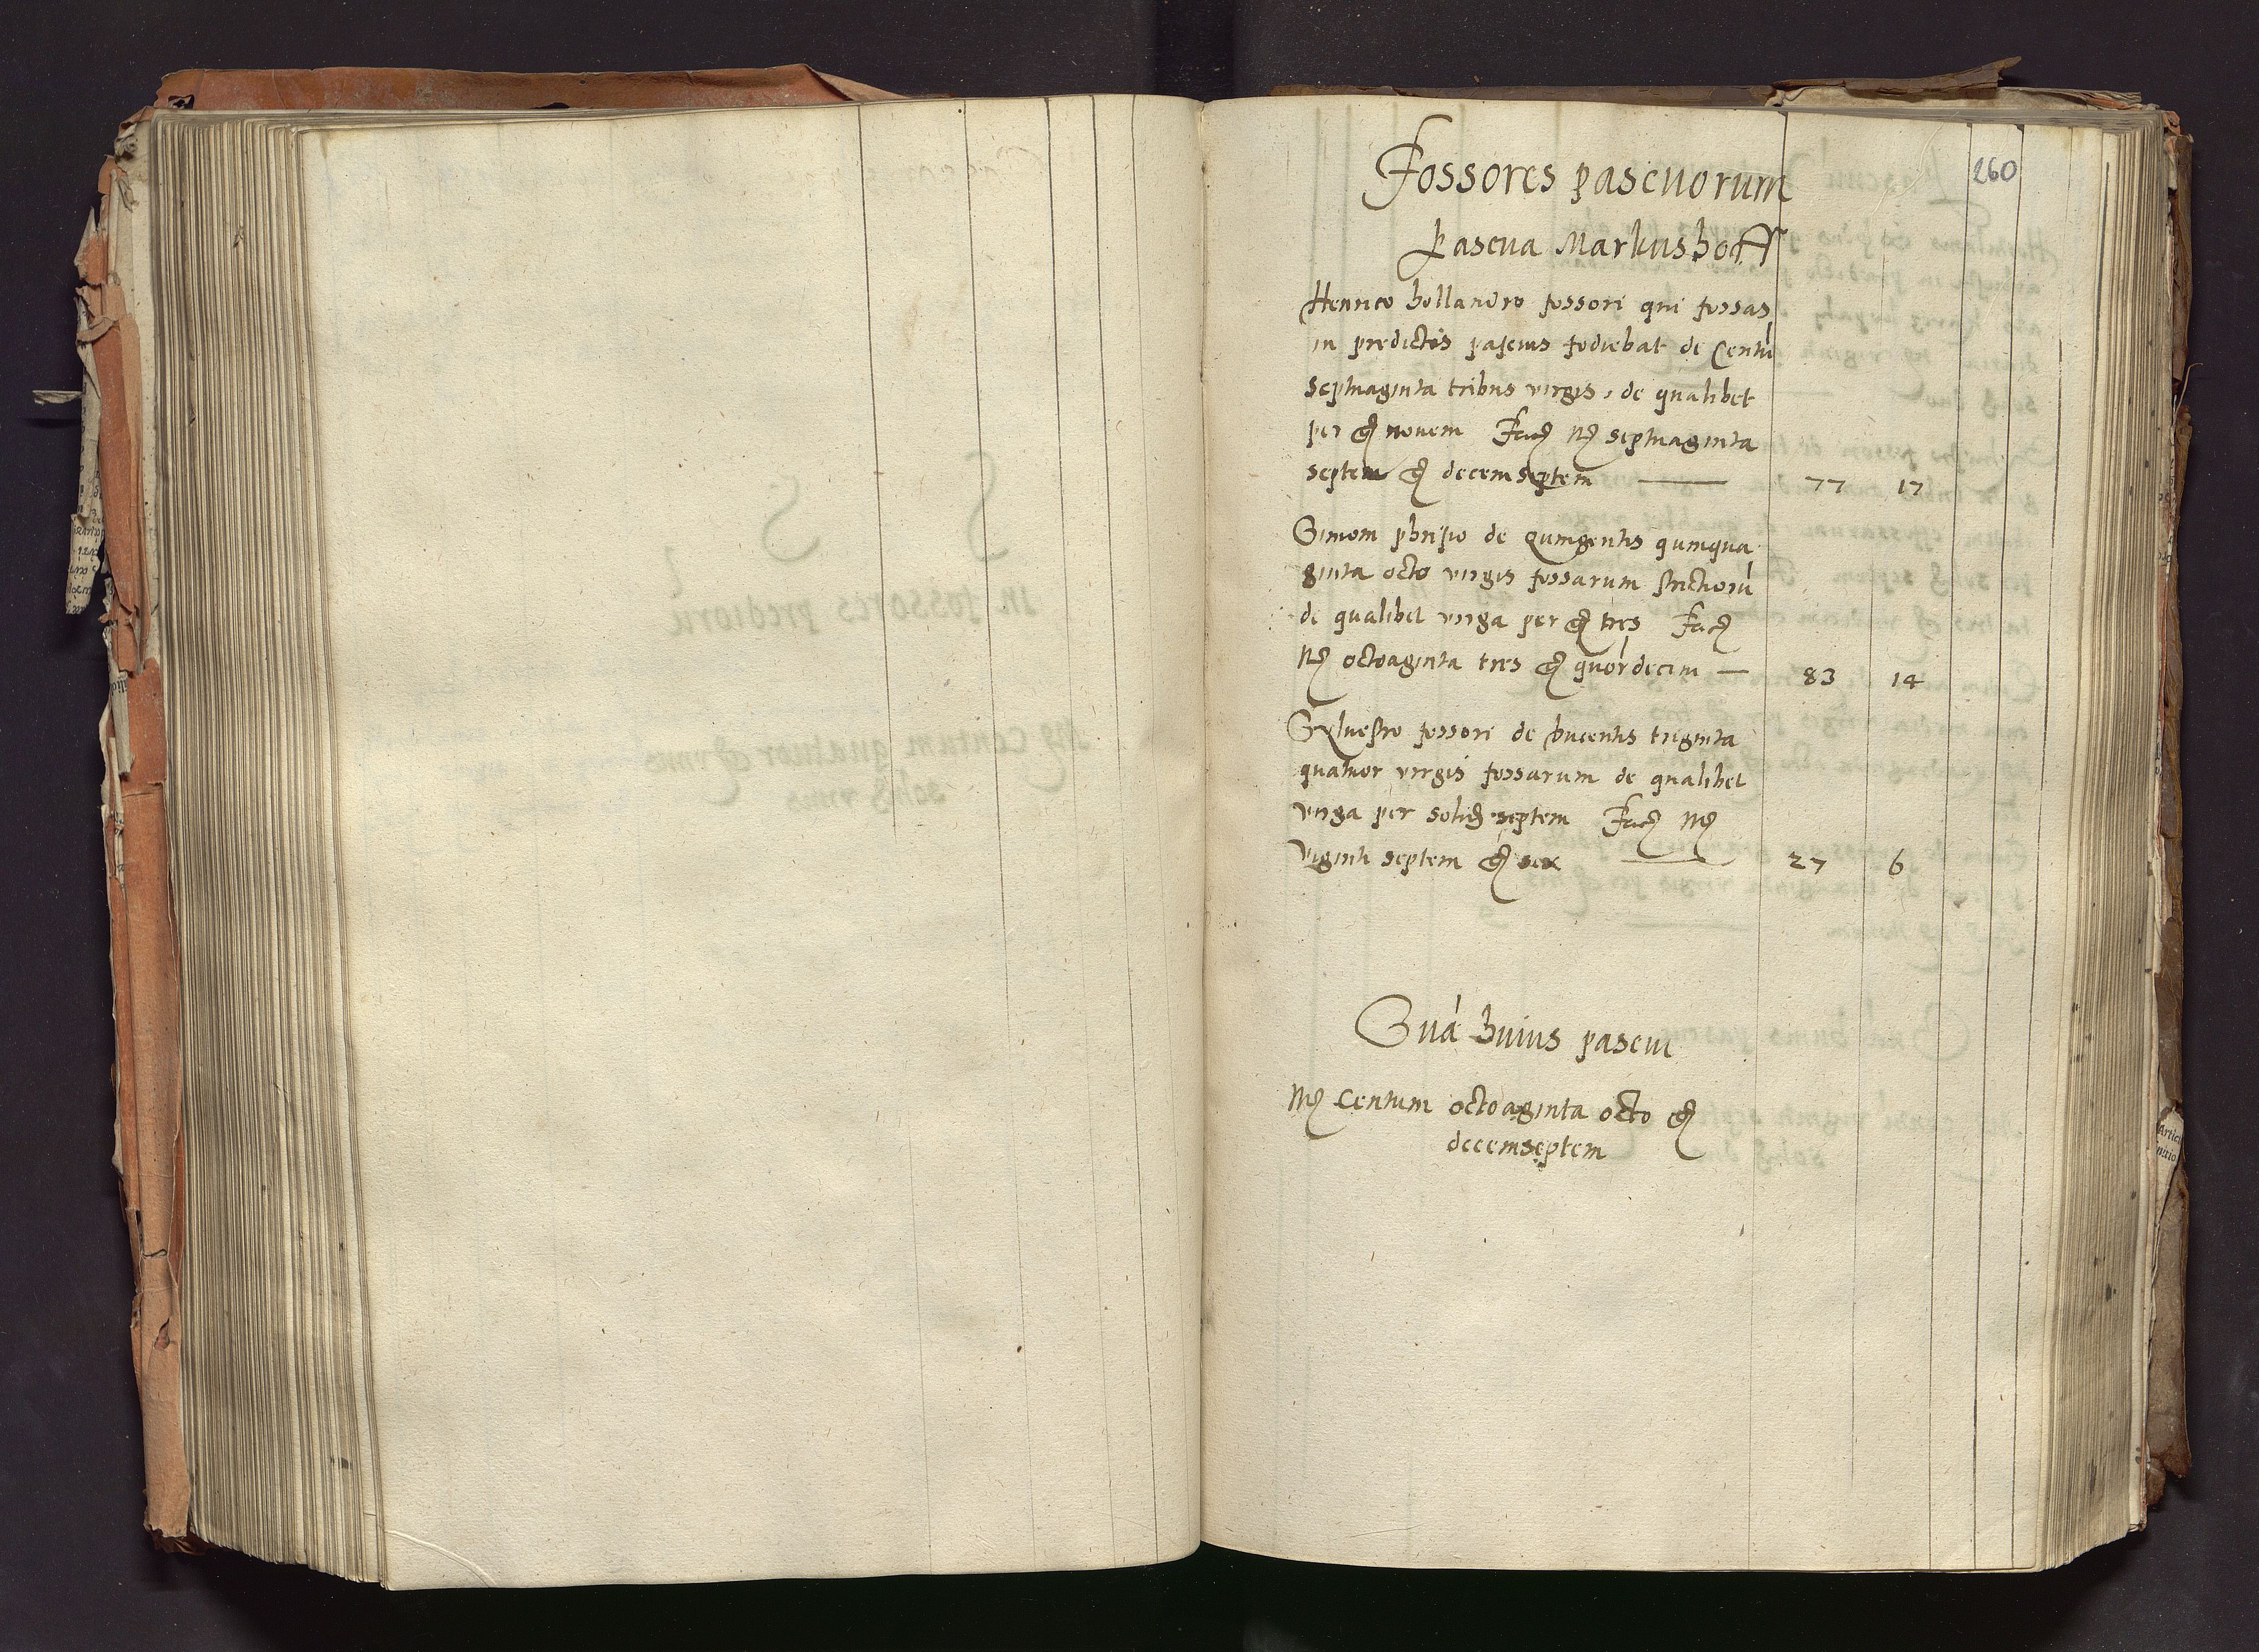 260
Fossores pascuorum
Pascua Markushoff
Henrico hollandro fossori qui fossas
in predictis pascuis fodiebat de Centũ
septuaginta tribus virgis, de qualibet
per novem Faci septuaginta
septem decemseptem — 77 17
Simom phrisio de quingentis quinqua
ginta octo virgis fossarum strictiorũ
de qualibet virga per tres Faci
octoaginta tres quordecim — 83 14
Sylvestro fossori de ducentis triginta
quatuor virgis fossarum de qualibet
virga per solid septem Faci
viginti septem sex — 27 6
Sua huius pascui
Centum octoaginta octo
decemseptem